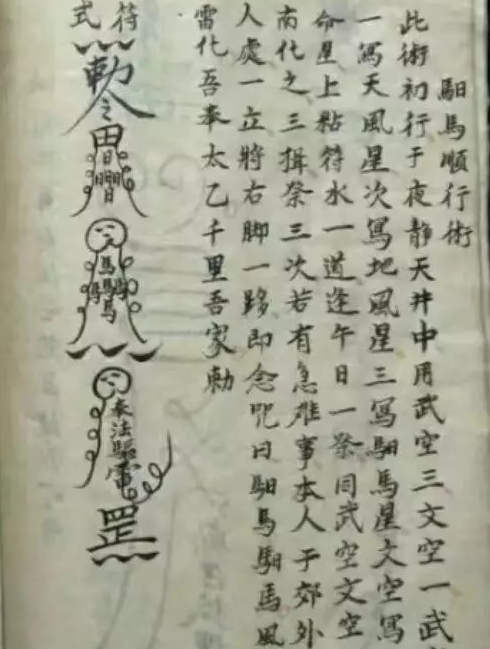 駟馬順行術
此術初行于夜静天井中用武空三文空一武
一寫天風星次寫地風星三寫駟馬星文空寫
命星上粘符水一道逢午日一祭同武空文空
南化之三揖祭三次若有急难事本人于郊外
人處一立將右脚一跺即念咒曰駟馬駟馬風
雷化吾奉太乙千里吾家勅
符式
勅令
奉法驅雷
罡